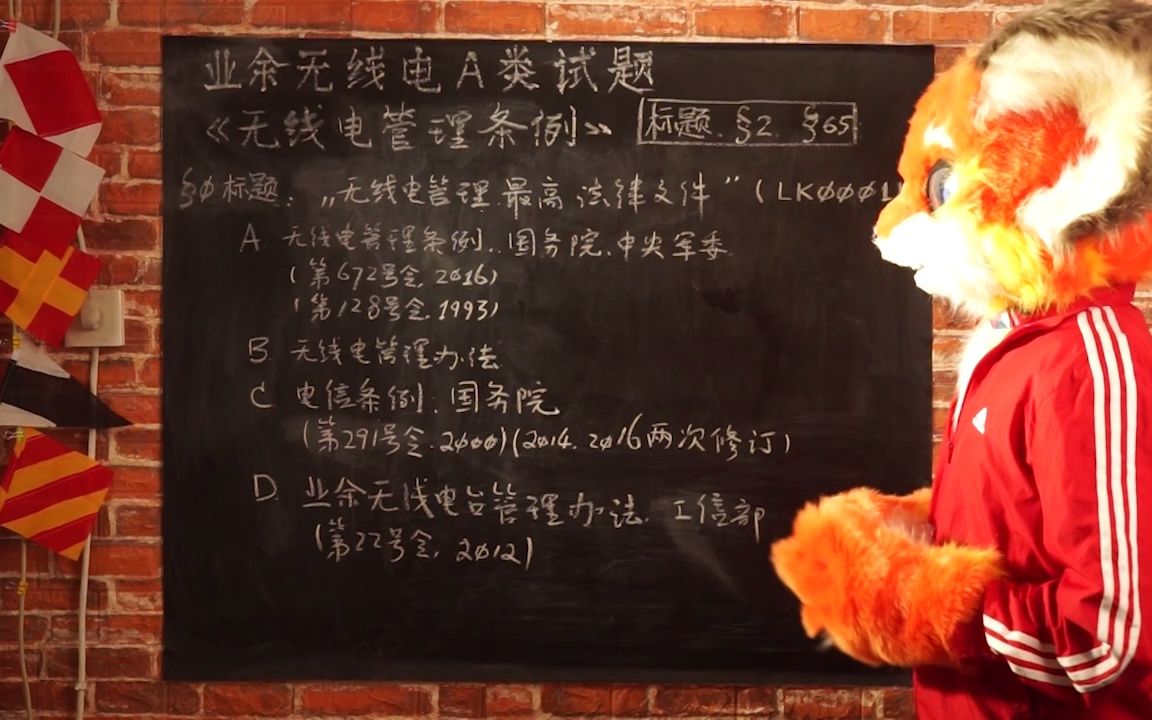 业余无线电A类试题
《无线电管理条例》
标题. §2. §65
§0标题. „无线电管理.最高法律文件” (LK0001
A. 无线电管理条例. 国务院、中央军委.
(第672号令, 2016)
(第128号令, 1993)
B. 无线电管理办法.
C. 电信条例. 国务院
(第291号令.2000)(2014. 2016两次修订)
D. 业余无线电台管理办法. 工信部
(第22号令, 2012)